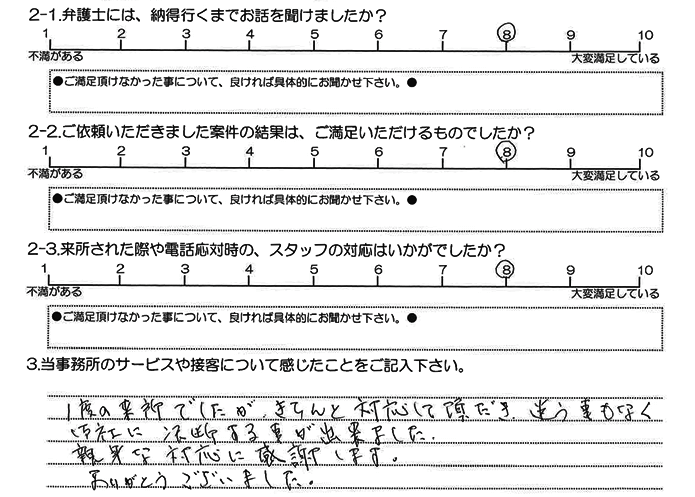 2-1.弁護士には、納得行くまでお話を聞けましたか？
1 2 3 4 5 6 7 8 9 10
不満がある 大変満足している
●ご満足頂けなかった事について、良ければ具体的にお聞かせ下さい。●
2-2.ご依頼いただきました案件の結果は、ご満足いただけるものでしたか？
1 2 3 4 5 6 7 8 9 10
不満がある 大変満足している
●ご満足頂けなかった事について、良ければ具体的にお聞かせ下さい。●
2-3.来所された際や電話応対時の、スタッフの対応はいかがでしたか？
1 2 3 4 5 6 7 8 9 10
不満がある 大変満足している
●ご満足頂けなかった事について、良ければ具体的にお聞かせ下さい。●
3.当事務所のサービスや接客について感じたことをご記入下さい。
1度の来所でしたが、きちんと対応して頂だき、迷う事もなく
御社に決断する事が出来ました。
親身な対応に感謝します。
ありがとうございました。